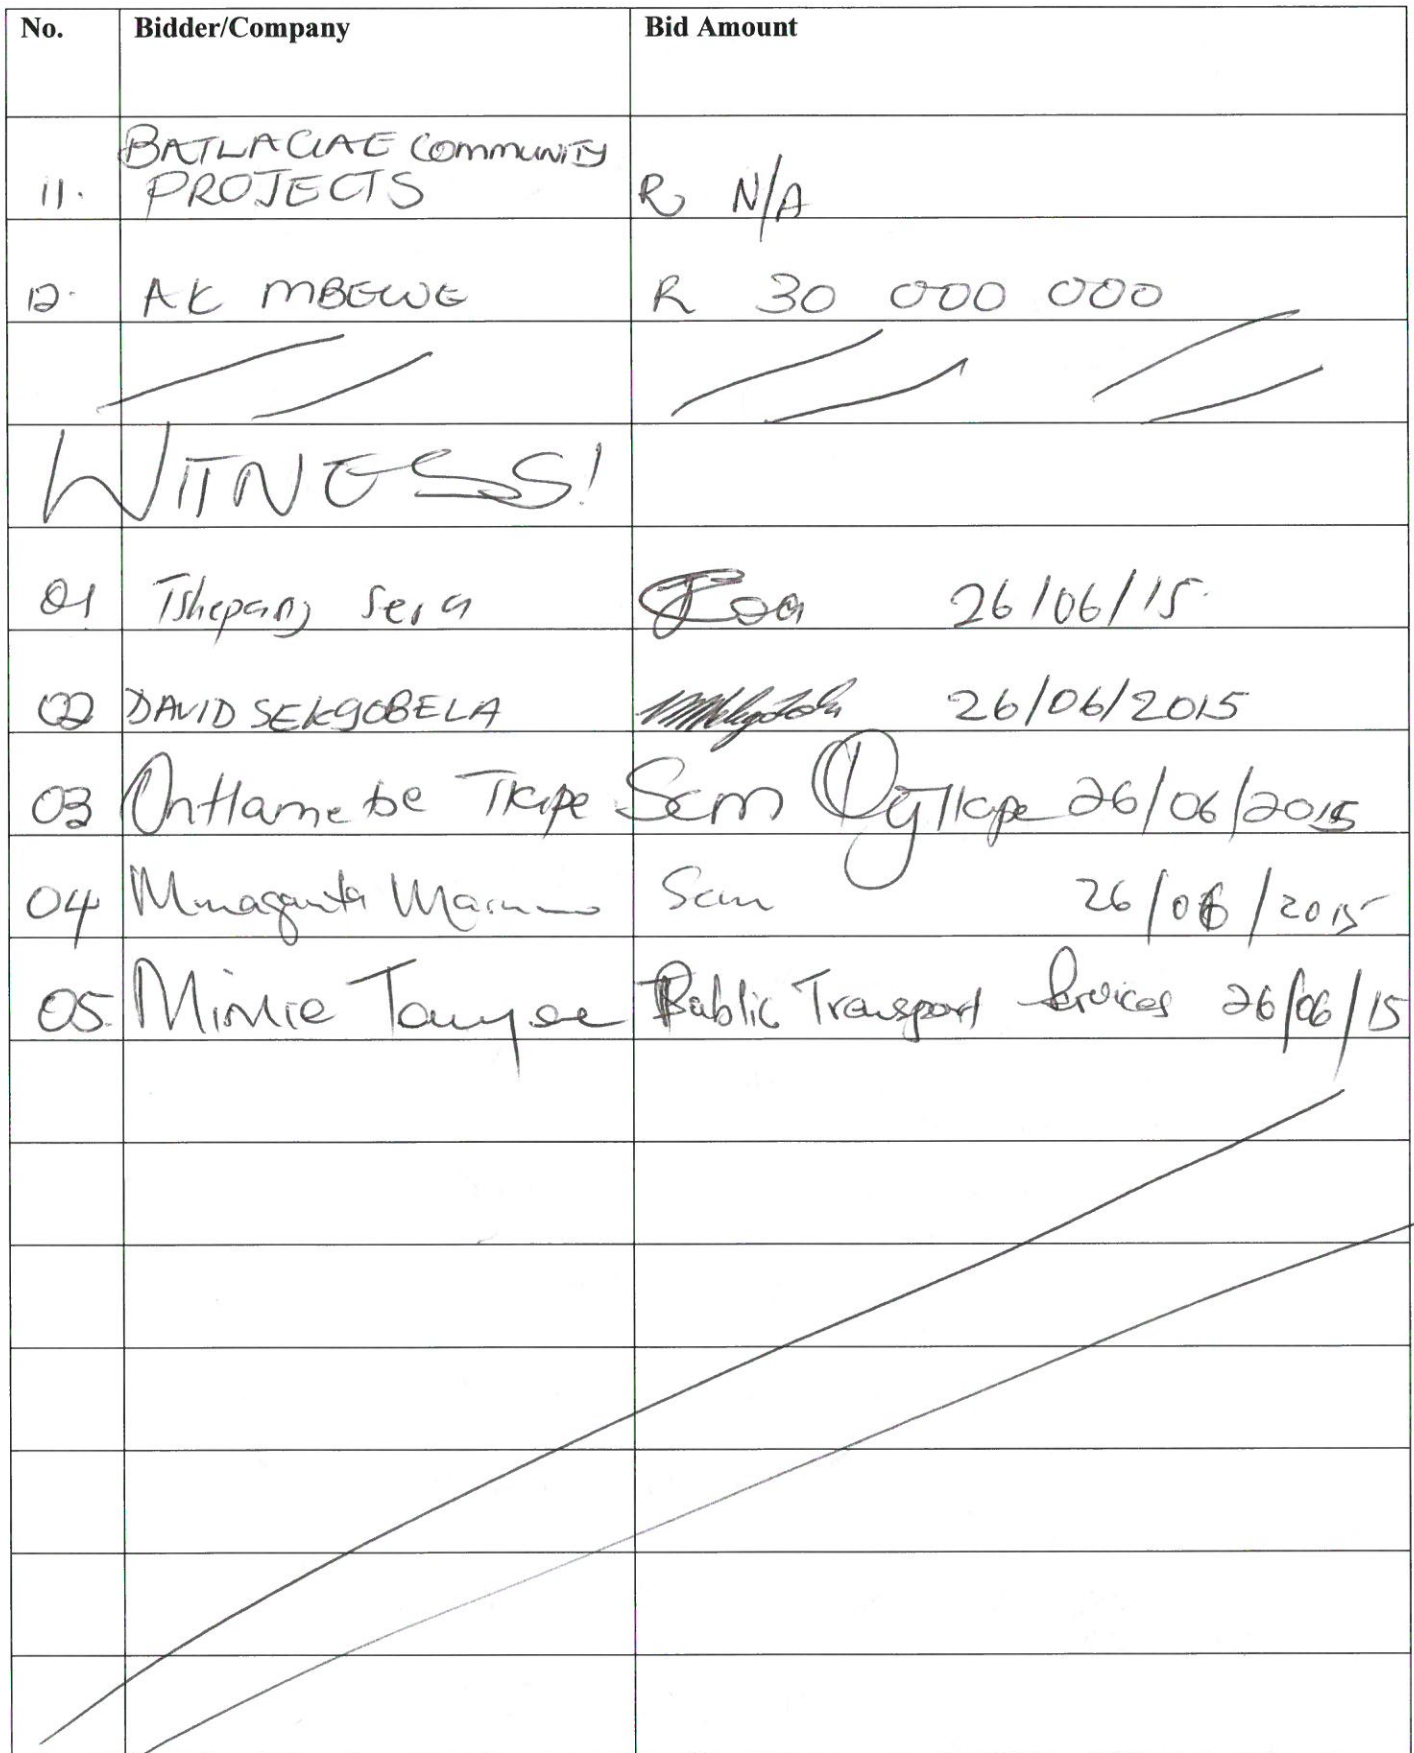 No. Bidder/Company Bid Amount
BATLACIAE COMMUNITY
11. PROJECTS R N/A
12. AK MBEWE R 30 000 000
WITNESS!
01 Tshepang 26/06/15
02 DAVID SEKGOBELA 26/06/2015
03 Ontlametse Tkape Scm 26/06/2015
04 Scm 26/06/2015
05. Minkie Public Transport Services 26/06/15